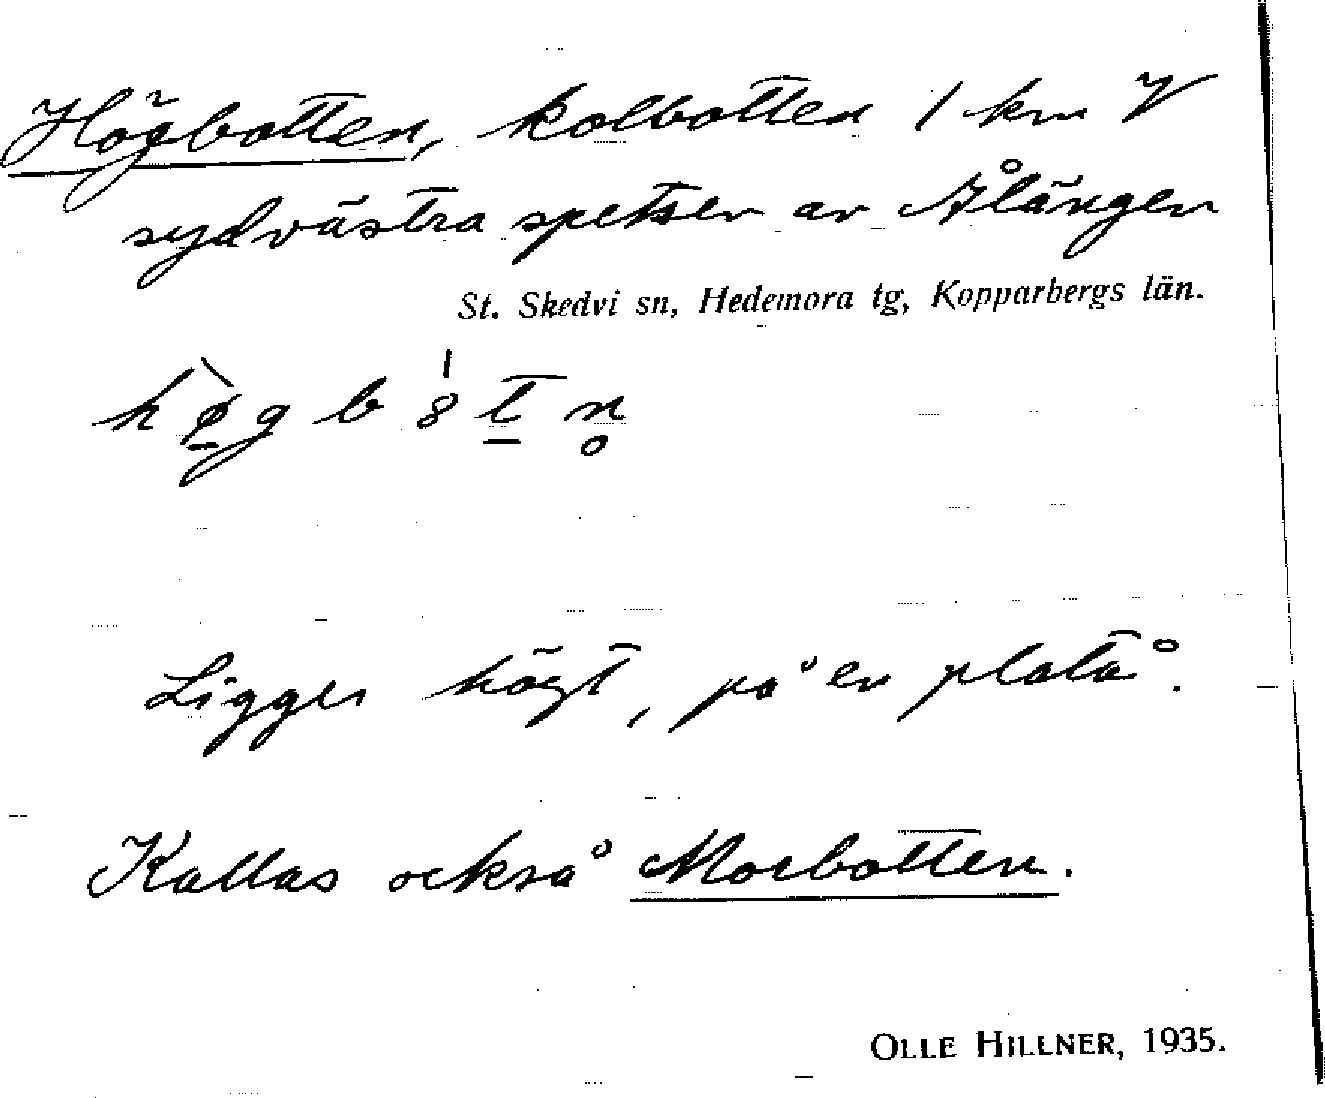 Högbotten, kolbotten 1 km V
sydvästra spetsen av Ålängen
St. Skedvi sn, Hedemora tg, Kopparbergs län.
Ligger högt, på en platå.
Kallas också Morbotten.
OLLE HILLNER, 1935.